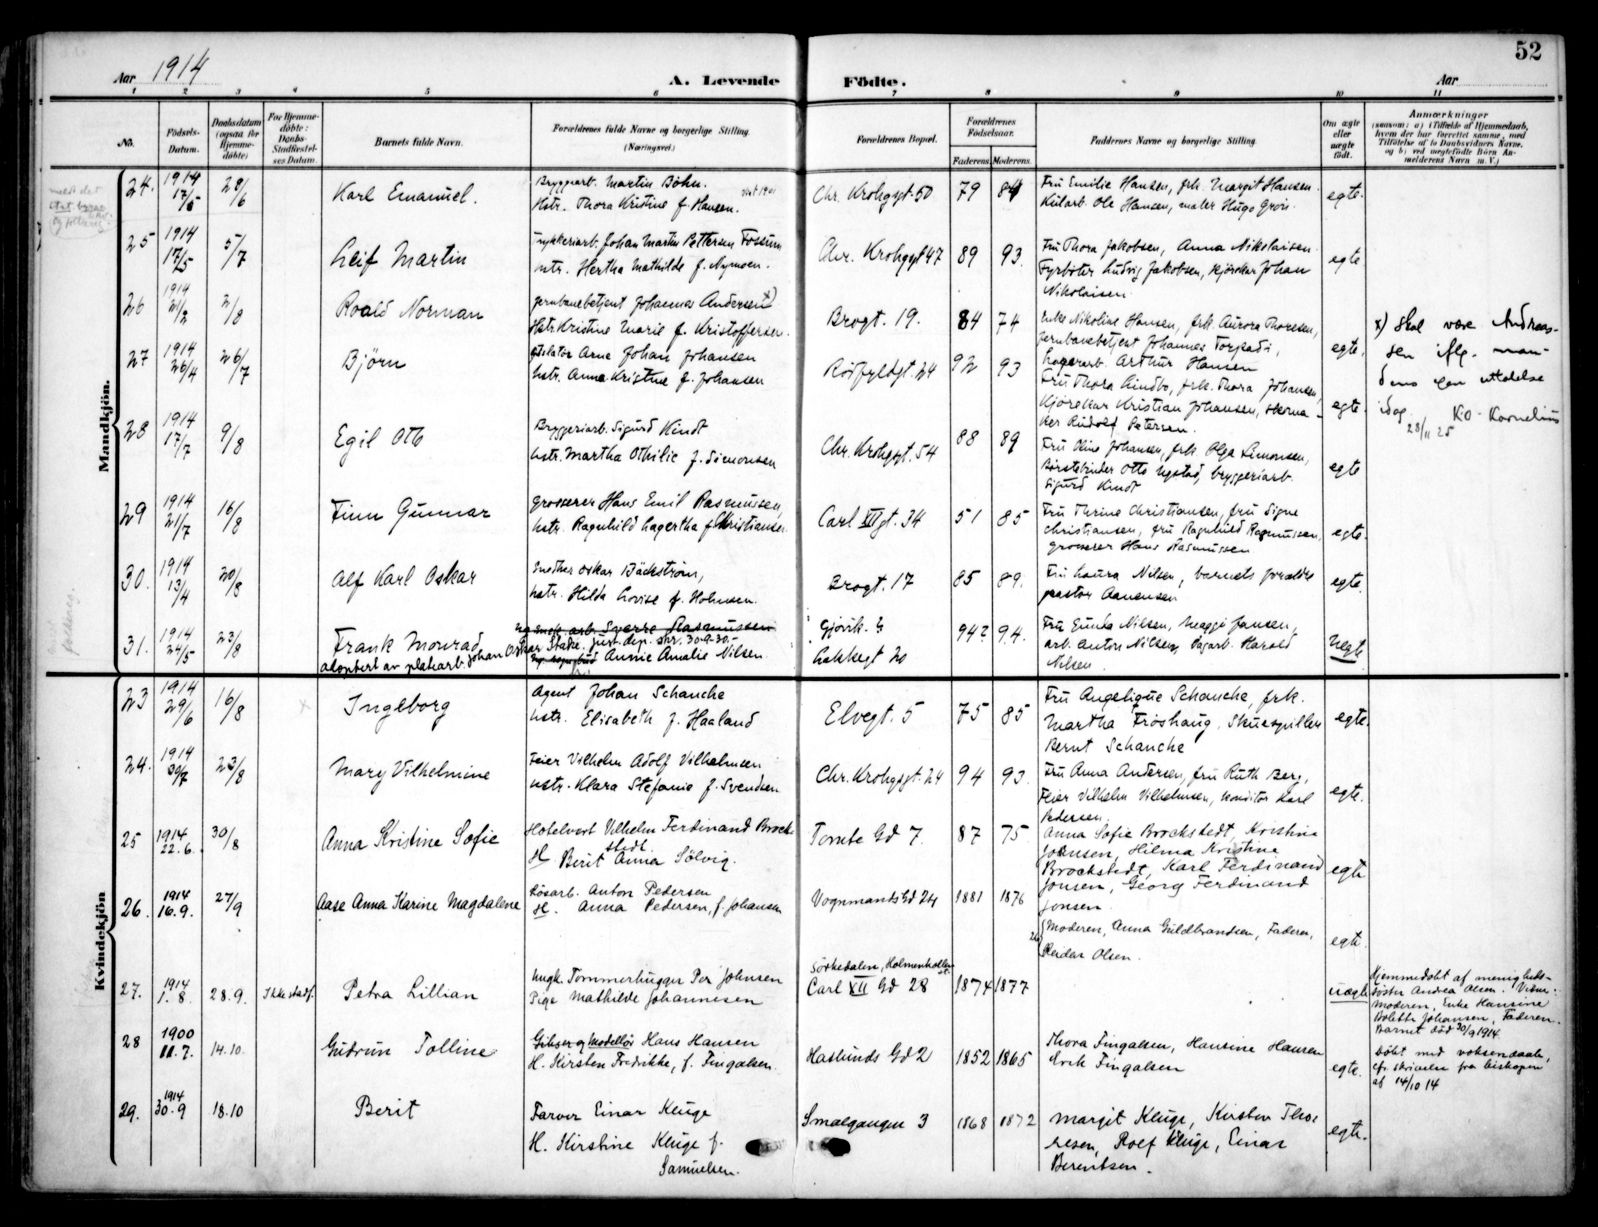 52
Aar 1914
A. Levende
Födte.
Aar
1 2 3 4 5 6 7 8 9 10 11
No.
Födsels-Datum.
Daabsdatum (ogsaa for Hjemme-döbte)
For Hjemme-döbte: Daabs-Stadfæstel-ses Datum
Barnets fulde Navn.
Forældrenes fulde Navne og borgerlige Stilling.
(Næringsvei)
Forældrenes Bopæl.
Forældrenes Födselsaar.
Faderens. Moderens.
Faddernes Navne og borgerlige Stilling.
Om ægte eller uægte födt.
Anmærkninger
(saasom: a) i Tilfælde af Hjemmedaab, hvem der har forrettet samme, med Tilföielse af to Daabsvidners Navne, og b) ved uægtefödte Börn An-melderens Navn m. V.)
Mandkjön.
24. 1914 17/5 28/6 Karl Emanuel.
Bryggarb. Martin Bøhn.
Hstr. Thora Kristine f. Hansen.
Chr. Krohgsgt. 50 79 84
Fru Emilie Hansen, frk. Margit Hansen.
Kularb. Ole Hansen, maler Hugo Grøn.
egte.
25 1914 17/5 5/7 Leif Martin
Trykkeriarb. Johan Martin Pettersen Fossum
hstr. Hertha Mathilde f. Nymoen.
Chr. Krohgsgt 47 89 93.
Fru Thora Jakobsen, Anna Nikolaisen.
Fyrbøter Ludvig Jakobsen, kjørekar Johan
Nikolaisen.
egte
26 1914 21/2 2/8 Roald Norman
Jernbanebetjent Johannes Andersen x)
Hstr Kristine Marie f. Kristoffersen.
Brogt. 19. 84 74
Enke Nikoline Hansen, frk. Aurora Thoresen,
jernbanebetjent Johannes
egte.
x) skal være Andreas-
sen iflg. man-
dens egen uttalelse
idag 28/11 25 KO. Kornelius
27 1914 26/4 26/7 Björn
Arne Johan Johansen
hstr. Anna Kristine f. Johansen
24 92 93
Lagerarb. Arthur Hansen
Fru Thora Lindbo, frk. Thora Johansen,
Kjørekar Kristian Johansen, skoma-
ker Rudolf Petersen.
egte.
28 1914 17/7 9/8 Egil Otto
Bryggeriarb. Sigurd Kindt
hstr. Martha Othilie f. Simonsen
Chr. Krohgsgt. 54 88 89
Fru Oline Johansen, frk. Olga Simonsen,
Børstebinder Otto Nystad, bryggeriarb.
Sigurd Kindt
egte
29 1914 21/7 16/8 Finn Gunnar
Grosserer Hans Emil Rasmussen,
hstr. Ragnhild Lagertha f. Christiansen.
Carl XII gt. 34 51 85
Fru Thrine Christiansen, fru Signe
Christiansen, fru Ragnhild Rasmussen,
grosserer Hans Rasmussen
egte.
30. 1914 13/4 20/8 Alf Karl Oskar
Snedker Oskar Bäckström,
hstr. Hilda Lovise f. Holmsen.
Brogt. 17 85 89.
Fru Laura Nilsen, barnets forældre
pastor Aanensen
egte.
31. 1914 24/5 23/8 Frank Monrad
adoptert av platearb. Johan Oskar Stake. just. dep. skr. 30.9.30.
arb. Sverre Rasmussen
Annie Amalie Nilsen.
Gjøvik.
Lakkegt 20
94 94.
Fru Gunda Nilsen, Maggi Jansen,
arb. Anton Nilsen, Harald
Nilsen.
uegte
Kvindekjön
23 1914 29/6 16/8 Ingeborg
Agent Johan Schanche
hstr. Elisabeth f. Haaland
Elvegt. 5 75 85
Fru Angelique Schanche, frk.
Martha Frøshaug, Skuespiller
Bernt Schanche
egte.
24. 1914 30/7 23/8 Mary Vilhelmine
Feier Vilhelm Adolf Vilhelmsen
hstr. Klara Stefanie f. Svendsen
Chr. Krohgsgt. 24 94 93
Fru Anna Andersen, fru Ruth Berg,
Feier Vilhelm Vilhelmsen, konditor Karl
Pedersen.
egte.
25 1914 22.6. 30/8 Anna Kristine Sofie
Hotelvert Vilhelm Ferdinand Brock-
stedt.
H Berit Anna Sölvig.
Tomte Gd 7. 87 75.
Anna Sofie Brockstedt, Kristine
Johnsen, Hilma Kristine
Brockstedt, Karl Ferdinand
Jonsen, Georg Ferdinand
Jonsen.
egte
26. 1914 16.9. 27/9 Aase Anna Karine Magdalene
Løsarb. Anton Pedersen
H. Anna Pedersen, f. Johansen
Vognmands Gd 24 1881 1876
Moderen, Anna Guldbrandsen, Faderen,
Reidar Olsen.
egte
27. 1914 1.8. 28.9. Ikke stadf. Petra Lillian
Ungk. Tømmerhugger Per Johnsen
Pige Mathilde Johannesen
Sørkedalen, Holmenkollen
Carl XII Gd 28 1874 1877
uægte
Hjemmedøbt af menigheds-
søster Andrea Olsen. Vidner:
Moderen, Enke Hansine
Bolette Johansen, Faderen.
Barnet död 30/9 1914.
28 1900 11.7. 14.10. Gudrun Tolline
Gibser og Modellør Hans Hansen
H. Kirsten Fredrikke, f. Fingalsen.
Haslunds Gd 2 1852 1865
Thora Fingalsen, Hansine Hansen
Erik Fingalsen
egte.
Döbt med voksendaab,
cfr. skrivelse fra biskopen
af 14/10 14
29. 1914 30.9 18.10 Berit
Farver Einar Kluge
H. Kirstine Kluge f.
Samuelsen.
Smalgangen 3 1868 1872
Margit Kluge, Kirsten Thor-
esen, Rolf Kluge, Einar
Berentsen.
egte.